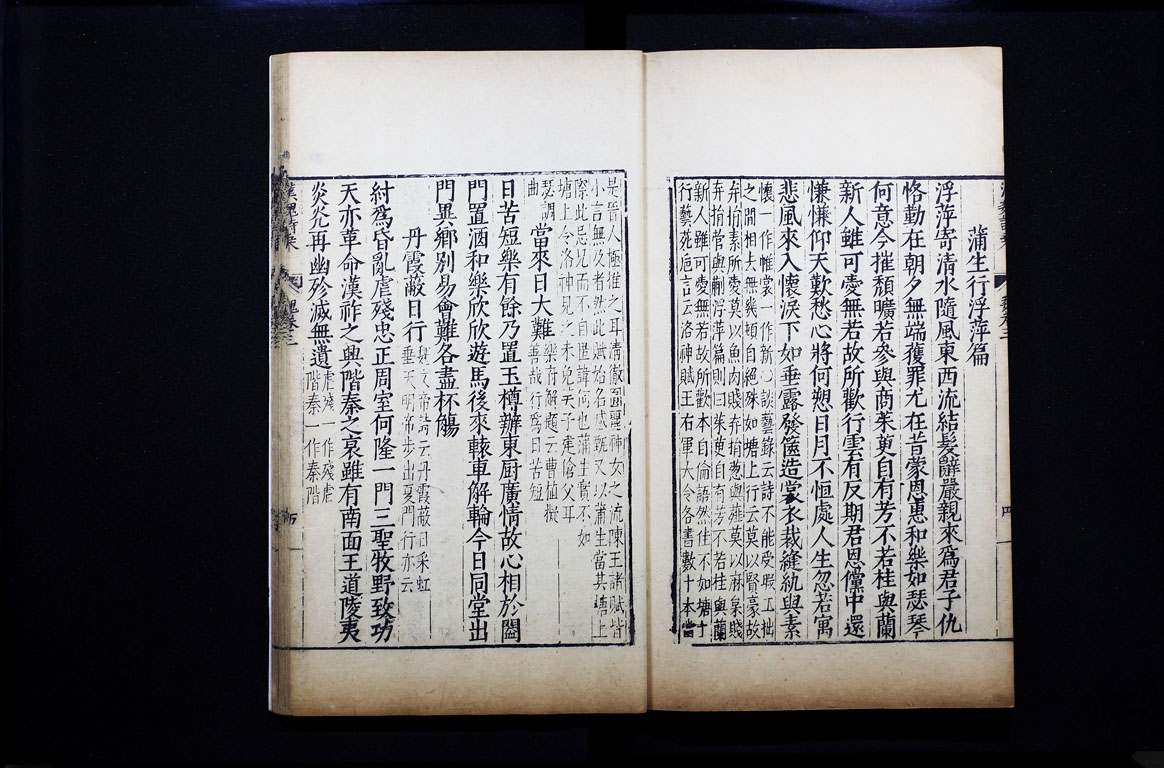 蒲生行浮萍篇
浮萍寄清水隨風東西流結髮辭嚴親來爲君子仇
恪勤在朝夕無端獲罪尤在昔蒙恩惠和樂如瑟琴
何意今摧頹曠若參與商茱萸自有芳不若桂與蘭
新人雖可愛無若故所歡行雲有反期君恩儻中還
慊慊仰天歎愁心將何愬日月不恒處人生忽若寓
悲風來入懷淚下如垂露發篋造裳衣裁縫紈與素
懷一作帷裳一作新○談藝錄云詩不能受瑕工拙
之間相去無幾頓自絕殊如塘上行云莫以賢豪故
弃捐素所愛莫以魚肉賤弃捐葱與薤莫以麻枲賤
弃捐菅與蒯浮萍篇則曰茱萸自有芳不若桂與蘭
新人雖可愛無若故所歡本自倫語然佳不如塘上
行藝苑巵言云洛神賦王右軍大令各書數十本當
是晉人極推之耳清徹圓麗神女之流陳王諸賦皆
小言無及者然此賦始名感甄又以蒲生當其塘上
際此忌兄而不自匿諱何也蒲生實不如
塘上令洛神見之未免笑子建傖父耳
當來日大難
樂府解題云曹植擬
善哉行爲日苦短
瑟調
曲
日苦短樂有餘乃置玉樽辦東厨廣情故心相於闔
門置酒和樂欣欣遊馬後來轅車解輪今日同堂出
門異鄉別易會難各盡杯觴
丹霞蔽日行
魏文帝詩云丹霞蔽日采虹
垂天明帝步出夏門行亦云
紂爲昏亂虐殘忠正周室何隆一門三聖牧野致功
天亦革命漢祚之興階秦之衰雖有南面王道陵夷
炎炎再幽殄滅無遺
虐殘一作殘虐
階秦一作秦階